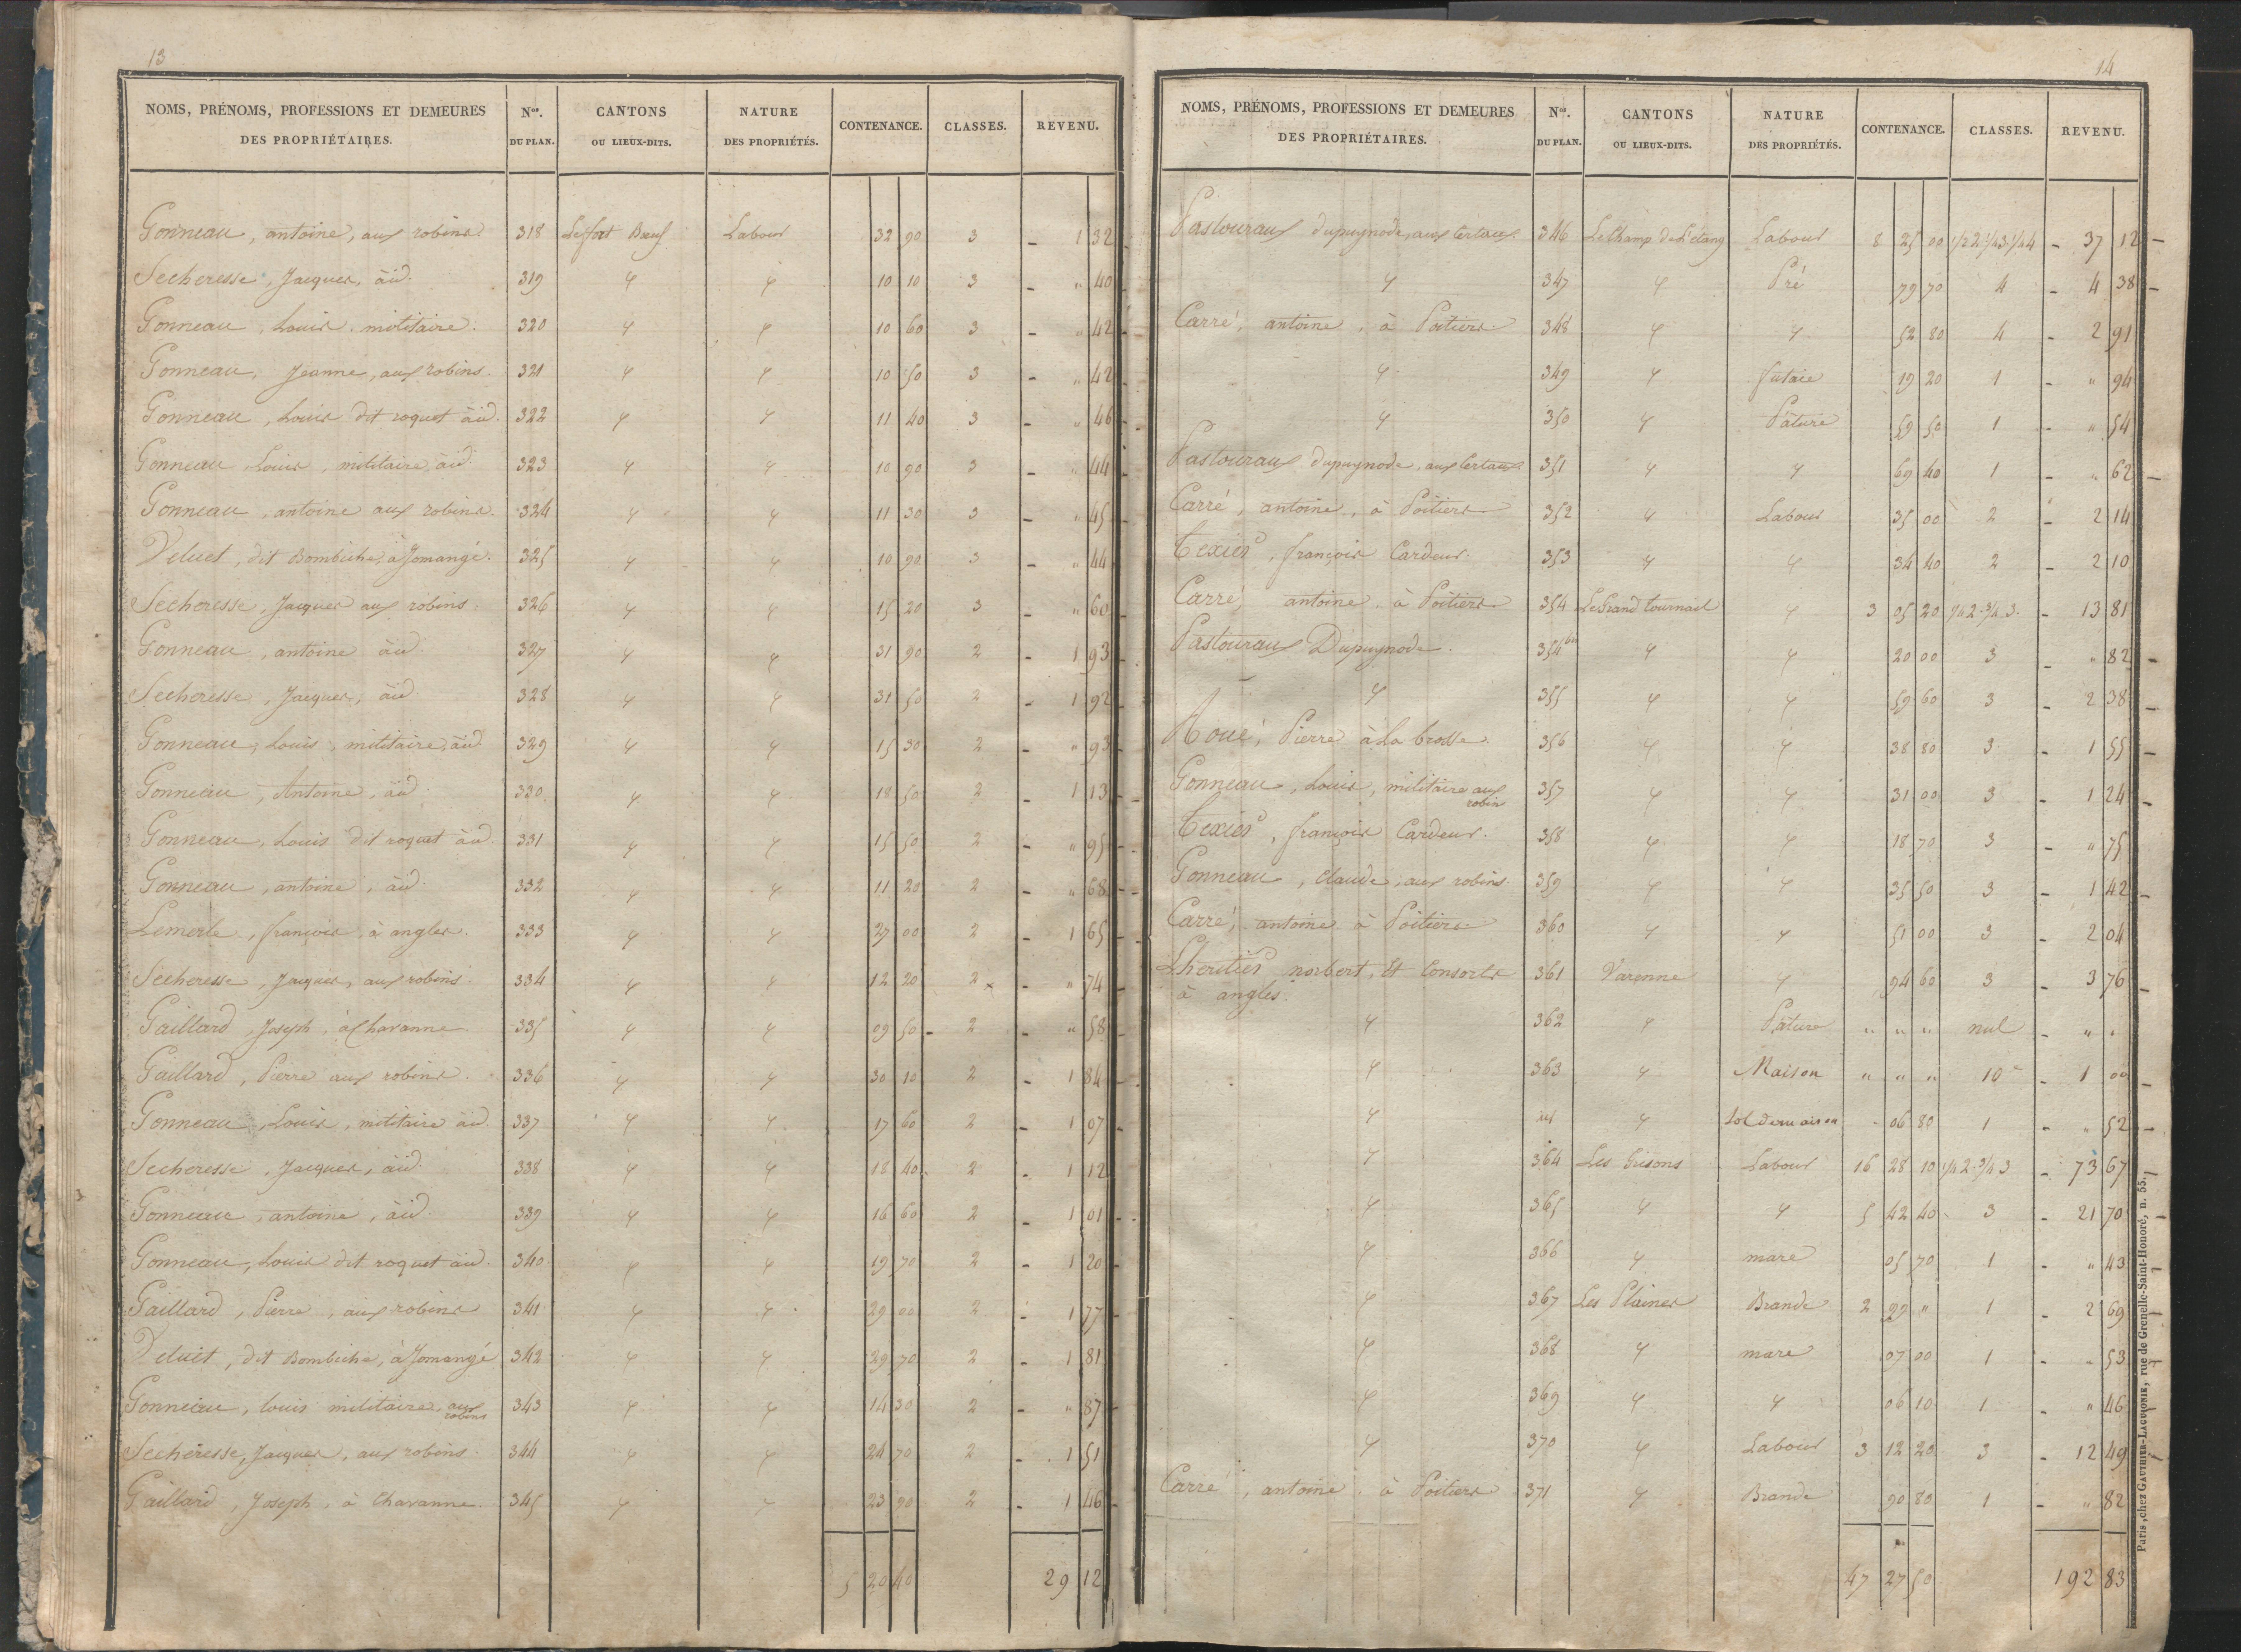 13
NOMS, PRÉNOMS, PROFESSIONS ET DEMEURES DES PROPRIÉTAIRES. Nos. DU PLAN. CANTONS OU LIEUX-DITS. NATURE DES PROPRIÉTÉS. CONTENANCE. CLASSES. REVENU.
Gonneau, antoine, aux robins 318 Le fort Bœuf Labour 32 90 3 - 1 32
Secheresse, Jacques, aûd. 319 " " 10 10 3 - " 40
Gonneau, Louis, militaire. 320 " " 10 60 3 - " 42
Gonneau, Jeanne, aux robins. 321 " " 10 50 3 - " 42
Gonneau, Louis dit roquet aûd. 322 " " 11 40 3 - " 46
Gonneau, Louis, militaire, aûd. 323 " " 10 90 3 - " 44
Gonneau, antoine aux robins. 324 " " 11 30 3 - " 45
Veluet, dit Bombiche, à Jomangé. 325 " " 10 90 3 - " 44
Secheresse, Jacques aux robins. 326 " " 15 20 3 - " 60
Gonneau, antoine aûd. 327 " " 31 90 2 - 1 93
Secheresse, Jacques, aûd. 328 " " 31 50 2 - 1 92
Gonneau, Louis, militaire, aûd 329 " " 15 30 2 - " 93
Gonneau, Antoine, aûd 330 " " 18 50 2 - 1 13
Gonneau, Louis dit roquet aûd 331 " " 15 50 2 - " 95
Gonneau, antoine, aûd. 332 " " 11 20 2 - " 68
Lemerle, françois, à angles. 333 " " 27 00 2 - 1 65
Secheresse, Jacques, aux robins. 334 " " 12 20 2 - " 74
Gaillard, Joseph, à Chavanne 335 " " 09 50 2 - " 58
Gaillard, Pierre aux robins. 336 " " 30 10 2 - 1 84
Gonneau, Louis, militaire aûd. 337 " " 17 60 2 - 1 07
Secheresse, Jacques, aûd. 338 " " 18 40 2 - 1 12
Gonneau, antoine, aûd. 339 " " 16 60 2 - 1 01
Gonneau, Louis dit roquet aûd. 340 " " 19 70 2 - 1 20
Gaillard, Pierre, aux robins 341 " " 29 00 2 - 1 77
Veluet, dit Bombiche, à Jomangé 342 " " 29 70 2 - 1 81
Gonneau, louis militaire, aux robins 343 " " 14 30 2 - " 87
Secheresse, Jacques, aux robins. 344 " " 24 70 2 - 1 51
Gaillard, Joseph, à Chavanne. 345 " " 23 90 2 - 1 46
5 20 40 29 12
14
NOMS, PRÉNOMS, PROFESSIONS ET DEMEURES DES PROPRIÉTAIRES. Nos. DU PLAN. CANTONS OU LIEUX-DITS. NATURE DES PROPRIÉTÉS. CONTENANCE. CLASSES. REVENU.
Pastouraux dupuynode, aux Certaux. 346 Le Champ de l'étang Labour 8 25 00 1/2 2. 1/4 3. 1/4 4 - 37 12
" 347 " Pré 79 70 4 - 4 38
Carré, antoine, à Poitiers. 348 " " 52 80 4 - 2 91
" 349 " futaie 19 20 1 - " 94
" 350 " Pâture 59 50 1 - " 54
Pastouraux dupuynode, aux Certaux. 351 " " 69 40 1 - " 62
Carré, antoine, à Poitiers 352 " Labour 35 00 2 - 2 14
Texier, françois Cardeur. 353 " " 34 40 2 - 2 10
Carré, antoine à Poitiers 354 Le Grand tournail " 3 05 20 1/4 2. 3/4 3. - 13 81
Pastouraux Dupuynode. 354 bis " " 20 00 3 - " 82
" 355 " " 59 60 3 - 2 38
Roué, Pierre à La brosse. 356 " " 38 80 3 - 1 55
Gonneau, Louis, militaire aux robin 357 " " 31 00 3 - 1 24
Texier, françois Cardeur. 358 " " 18 70 3 - " 75
Gonneau, Claude, aux robins. 359 " " 35 50 3 - 1 42
Carré, antoine à Poitiers. 360 " " 51 00 3 - 2 04
Lheritier norbert, et Consorts à angles. 361 Varenne " 94 60 3 - 3 76
" 362 " Pâture " " " nul - " "
" 363 " Maison " " " 10e - 1 00
" id " Sol de maison 06 80 1 - " 52
" 364 Les Grisons Labour 16 28 10 1/4 2. 3/4 3 - 73 67
" 365 " " 5 42 40 3 - 21 70
" 366 " mare 05 70 1 - " 43
" 367 Les Plaines Brande 2 99 " 1 - 2 69
" 368 " mare 07 00 1 - " 53
" 369 " " 06 10 1 - " 46
" 370 " Labour 3 12 20 3 - 12 49
Carré, antoine, à Poitiers 371 " Brande 90 80 1 - " 82
47 27 50 192 83
Paris, chez GAUTHIER-LAGUIONIE, rue de Grenelle-Saint-Honoré, n. 55.